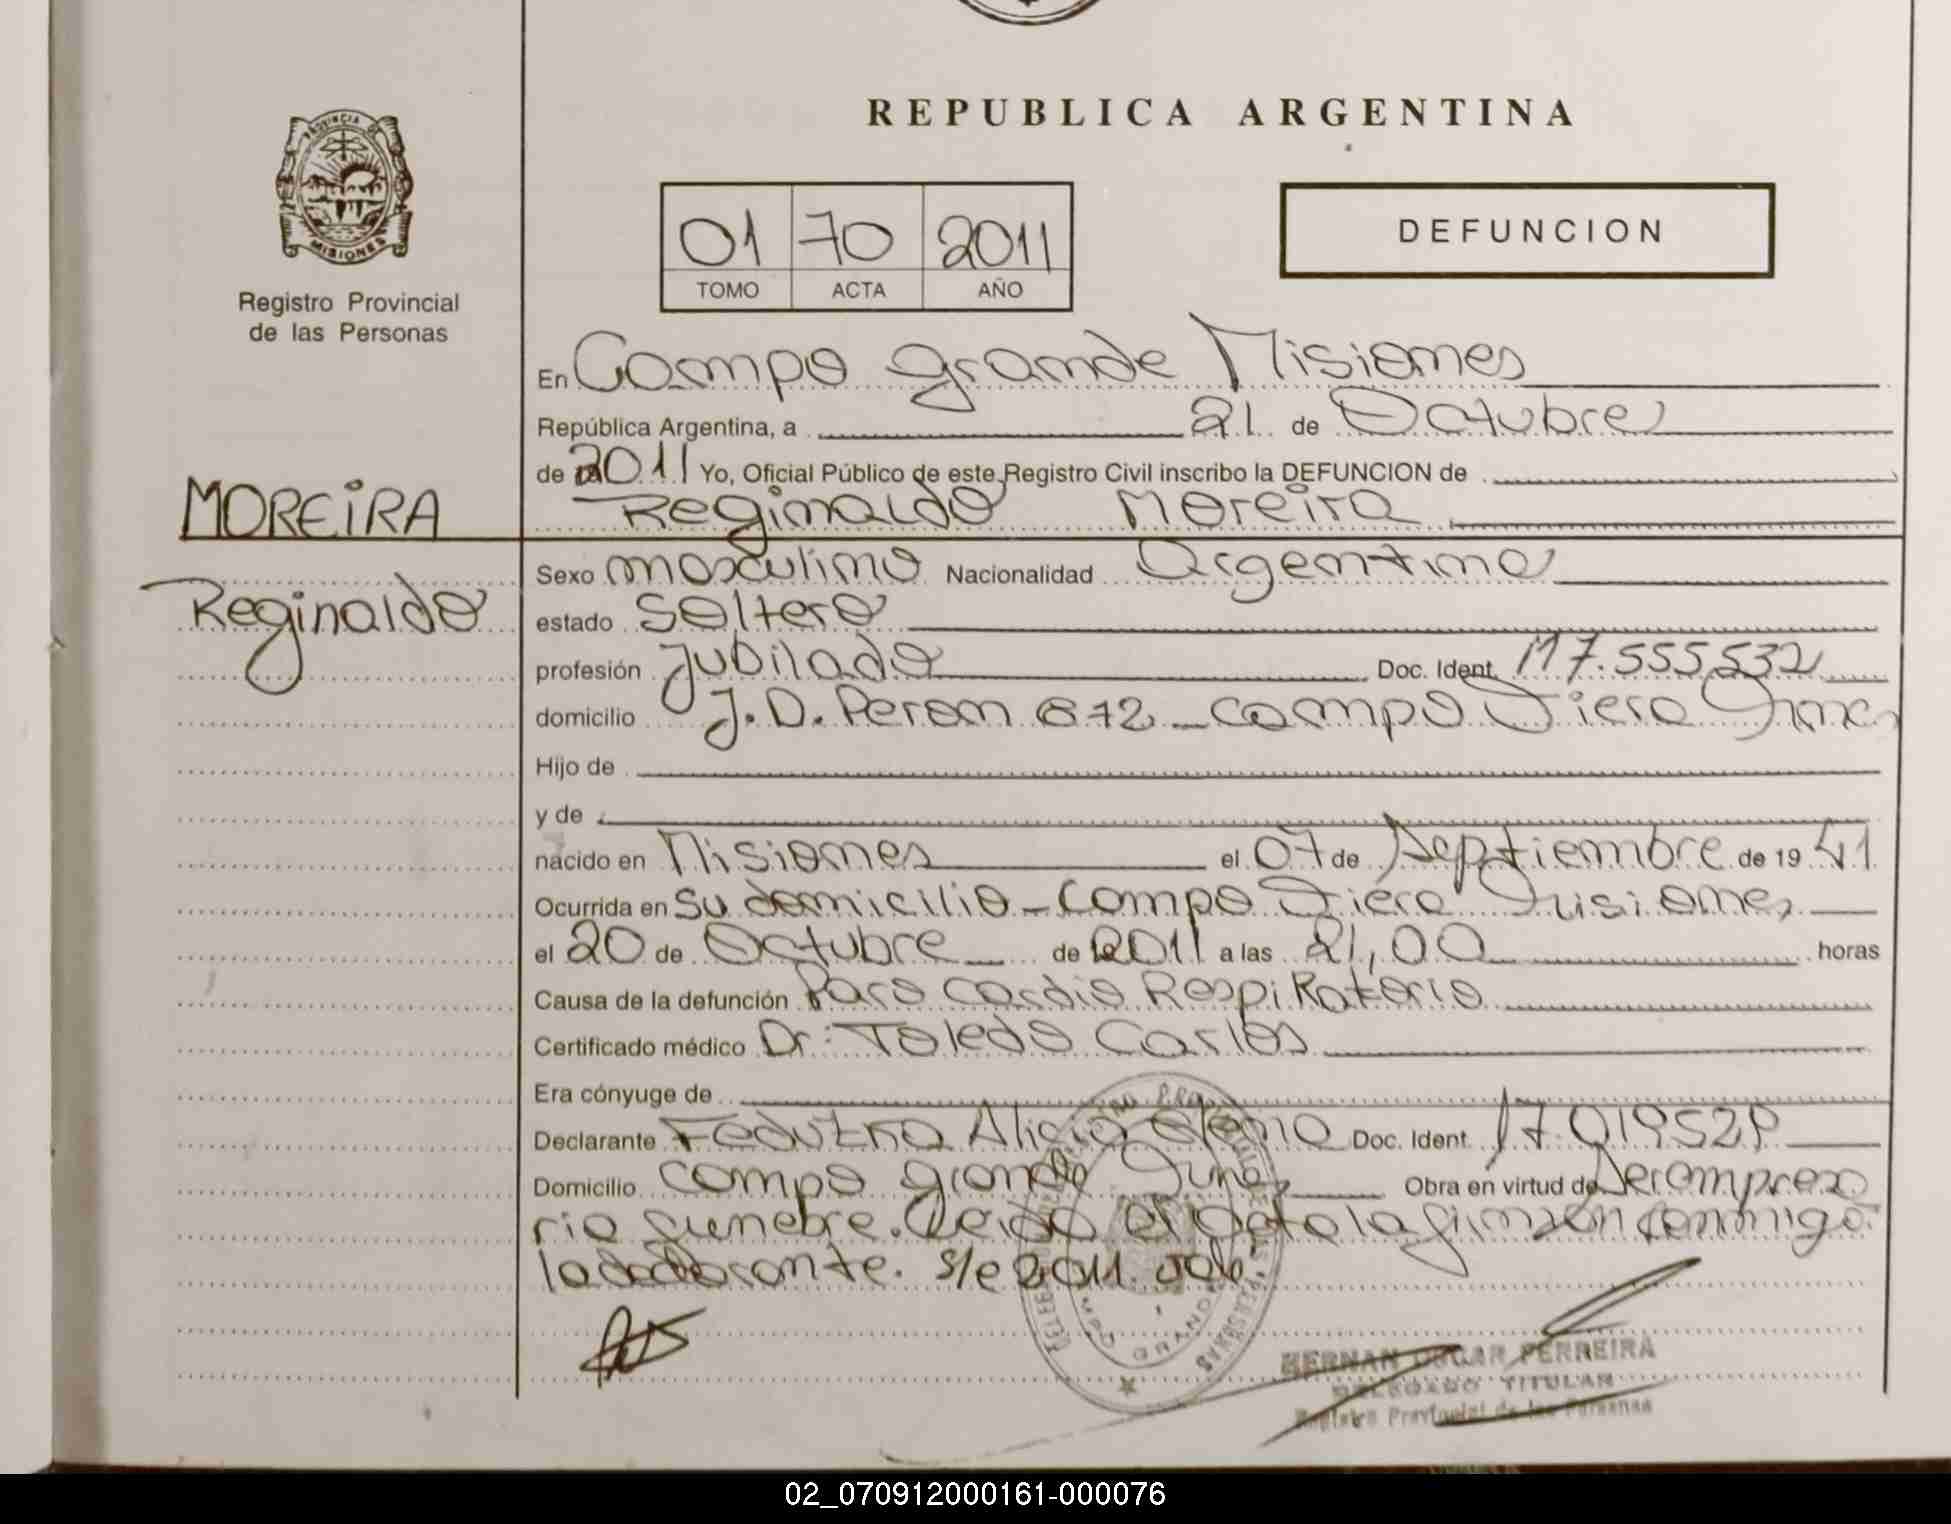 REPUBLICA ARGENTINA
PROVINCIA DE
MISIONES
Registro Provincial
de las Personas
01 70 2011
TOMO ACTA AÑO
DEFUNCION
En Campo Grande Misiones
República Argentina, a 21 de Octubre
de 2011 Yo, Oficial Público de este Registro Civil inscribo la DEFUNCION de
MOREIRA
Reginaldo Moreira
Reginaldo
Sexo masculino Nacionalidad Argentina
estado soltero
profesión Jubilado Doc. Ident. M7.555.532
domicilio J. D. Peron 672 - Campo Viera
Hijo de
y de
nacido en Misiones el 07 de Septiembre de 19 41
Ocurrida en su domicilio - Campo Viera Misiones
el 20 de Octubre de 2011 a las 21,00 horas
Causa de la defunción Paro Cardio Respiratorio
Certificado médico Dr: Toledo Carlos
Era cónyuge de
Declarante Alicia Elena Doc. Ident. 17.019529
Domicilio Campo Grande Obra en virtud de ser empresa
ria funebre. Leida el acta la firman conmigo
la declarante. s/e 2011. Vale.
HERNAN OSCAR FERREIRA
DELEGADO TITULAR
Registro Provincial de las Personas
02_070912000161-000076